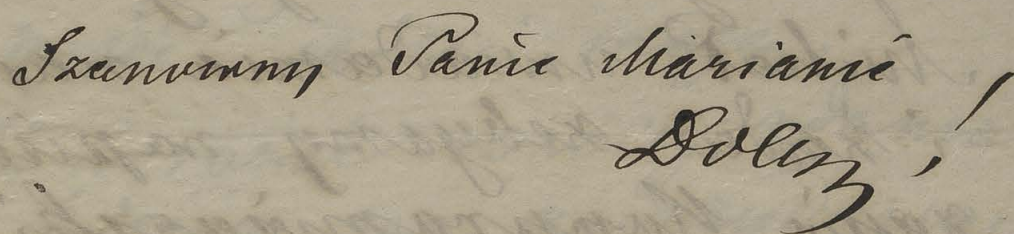 Szanowny Panie Marianie !